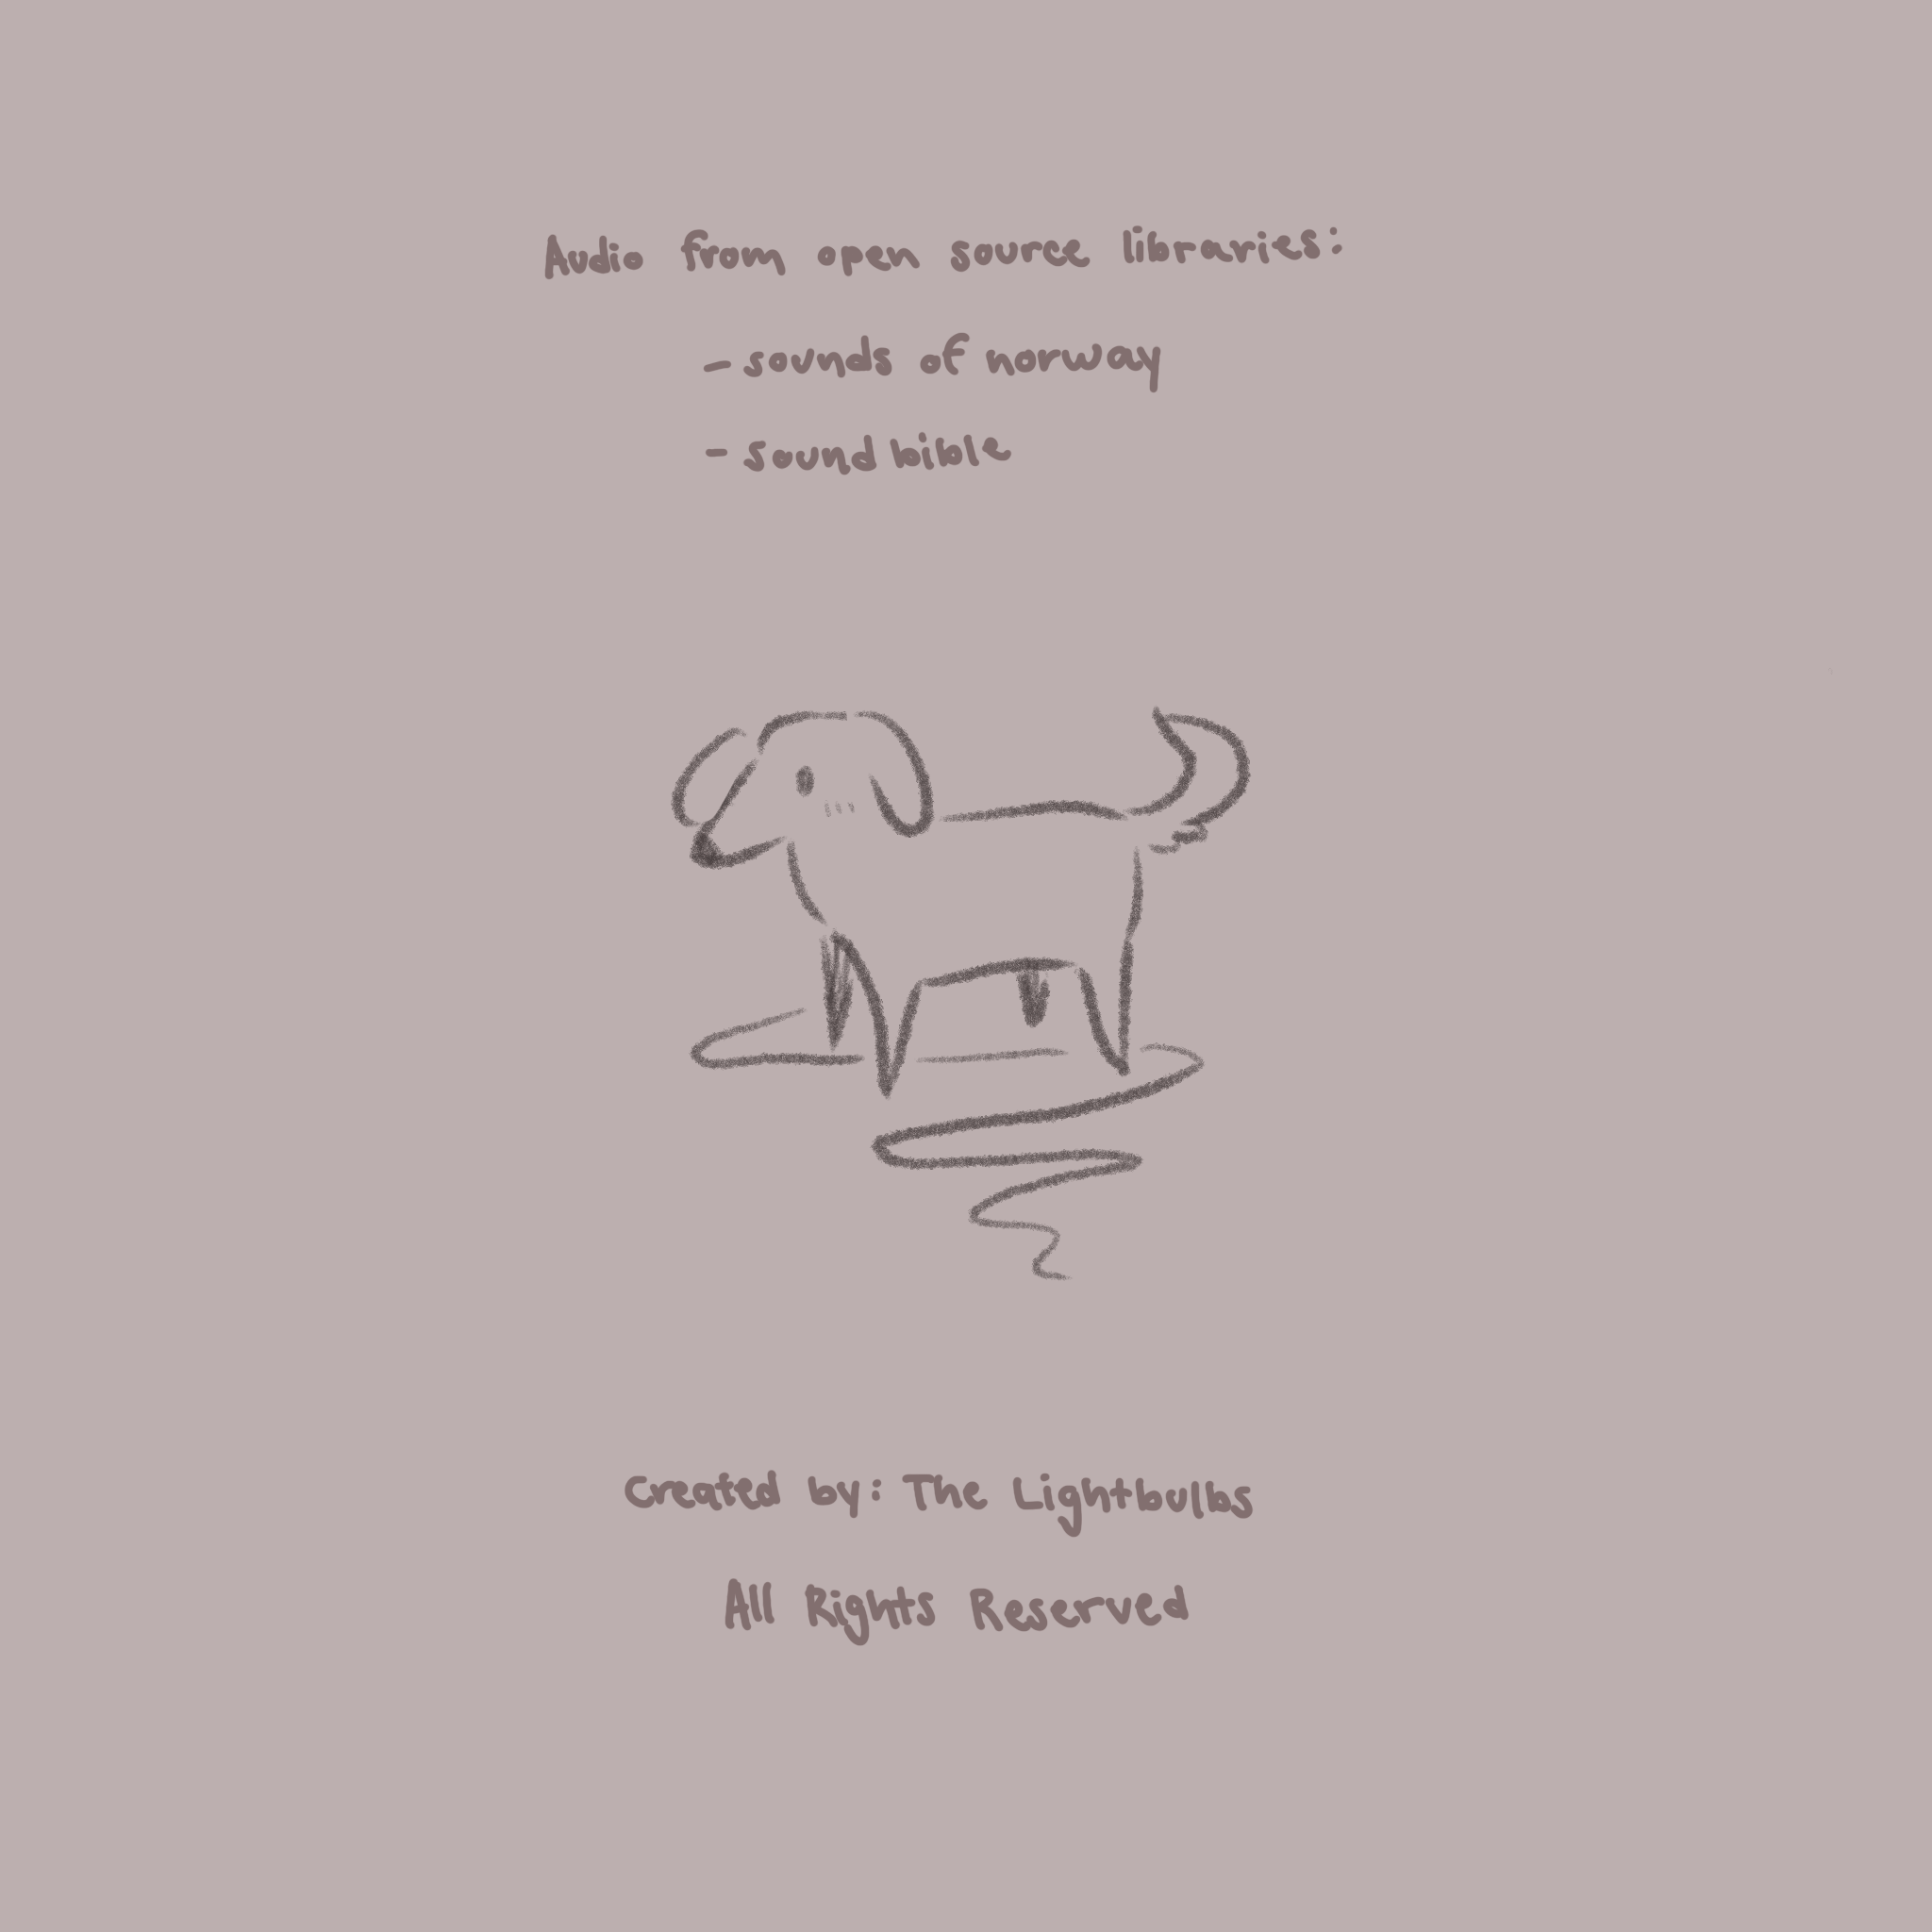 Audio from open source libraries:
- sounds of norway
- sound bible
Created by: The Lightbulbs
All Rights Reserved